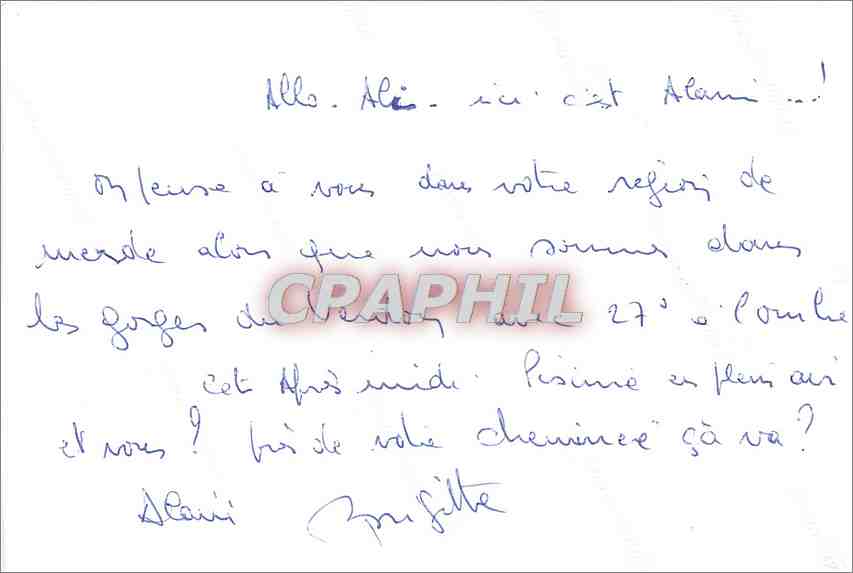 Allo. Ali. ici c'est Alain ...!
On pense à vous dans votre region de
merde alors que nous sommes dans
les gorges du Verdon avec 27° a l'ombre
CPAPHIL
cet Après midi. Piscine en plein air
et vous ? près de votre cheminee çà va ?
Alain Brigitte